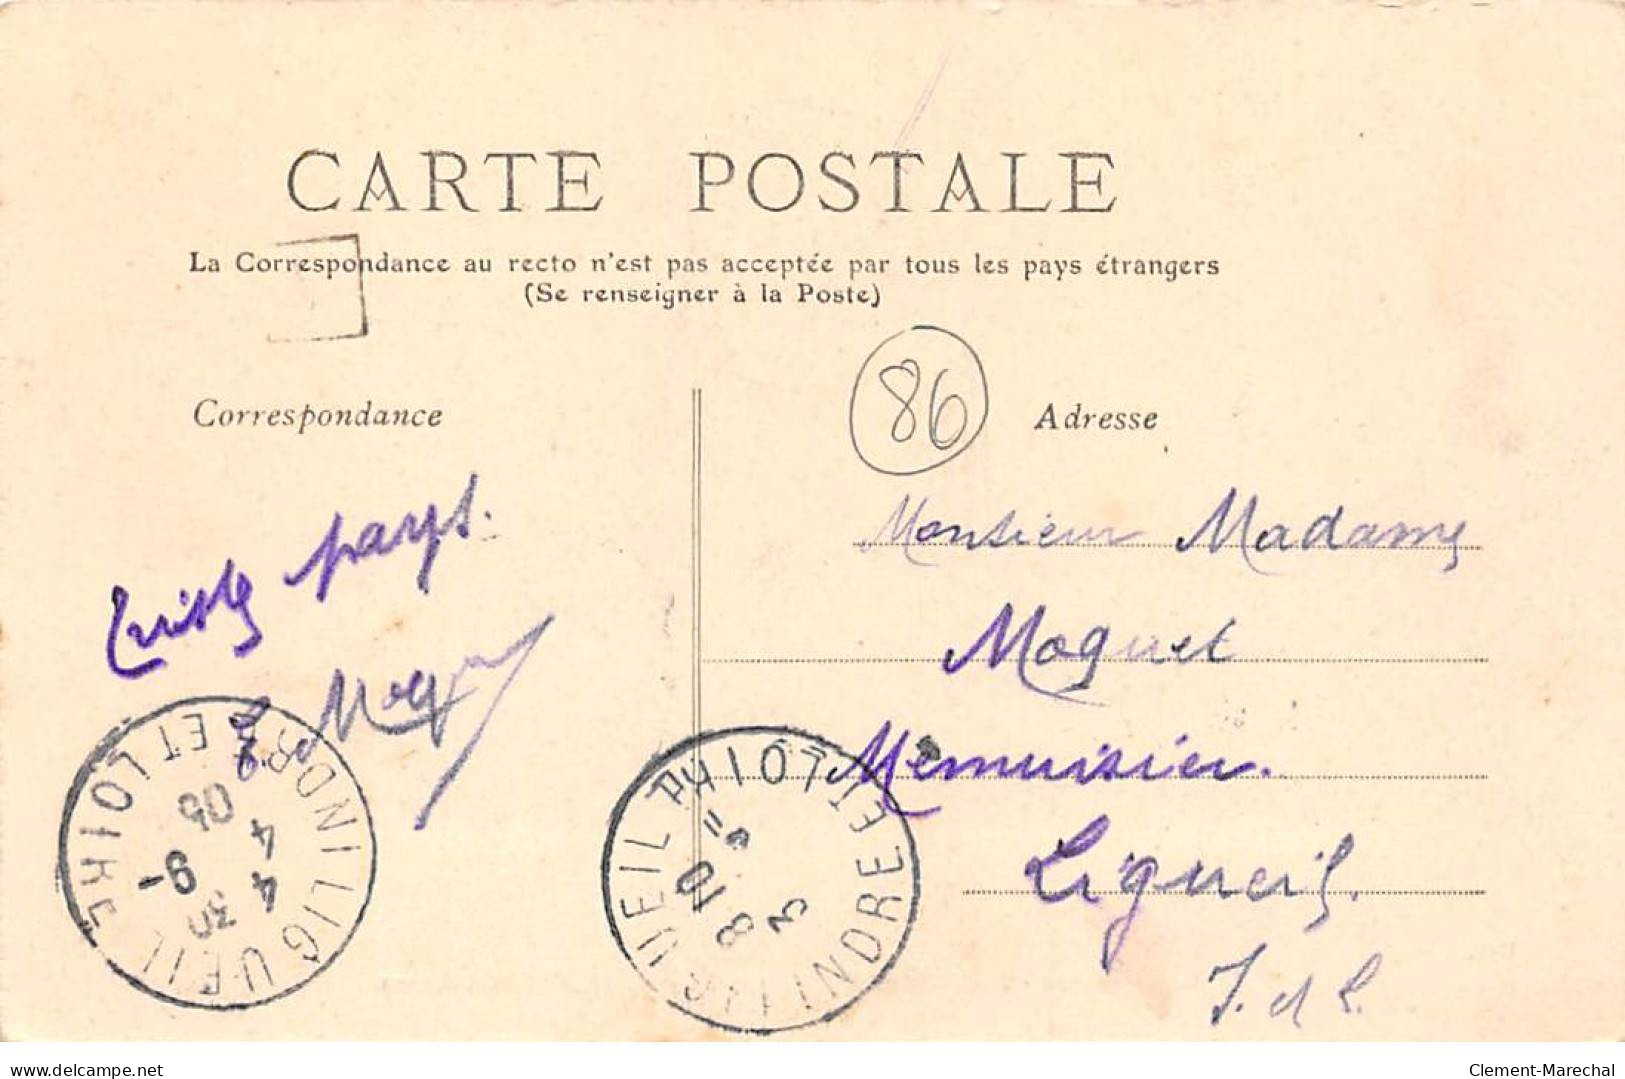 CARTE POSTALE
La Correspondance au recto n'est pas acceptée par tous les pays étrangers
(Se renseigner à la Poste)
Correspondance
86
Adresse
triste pays.
Monsieur Madame
Moquet
Menuisier.
Ligueil.
I. et L.
LIGUEIL INDRE ET LOIRE
4 30
9-4
4
05
LIGUEIL INDRE ET LOIRE
8 10
3
delcampe.net
Clement-Marechal